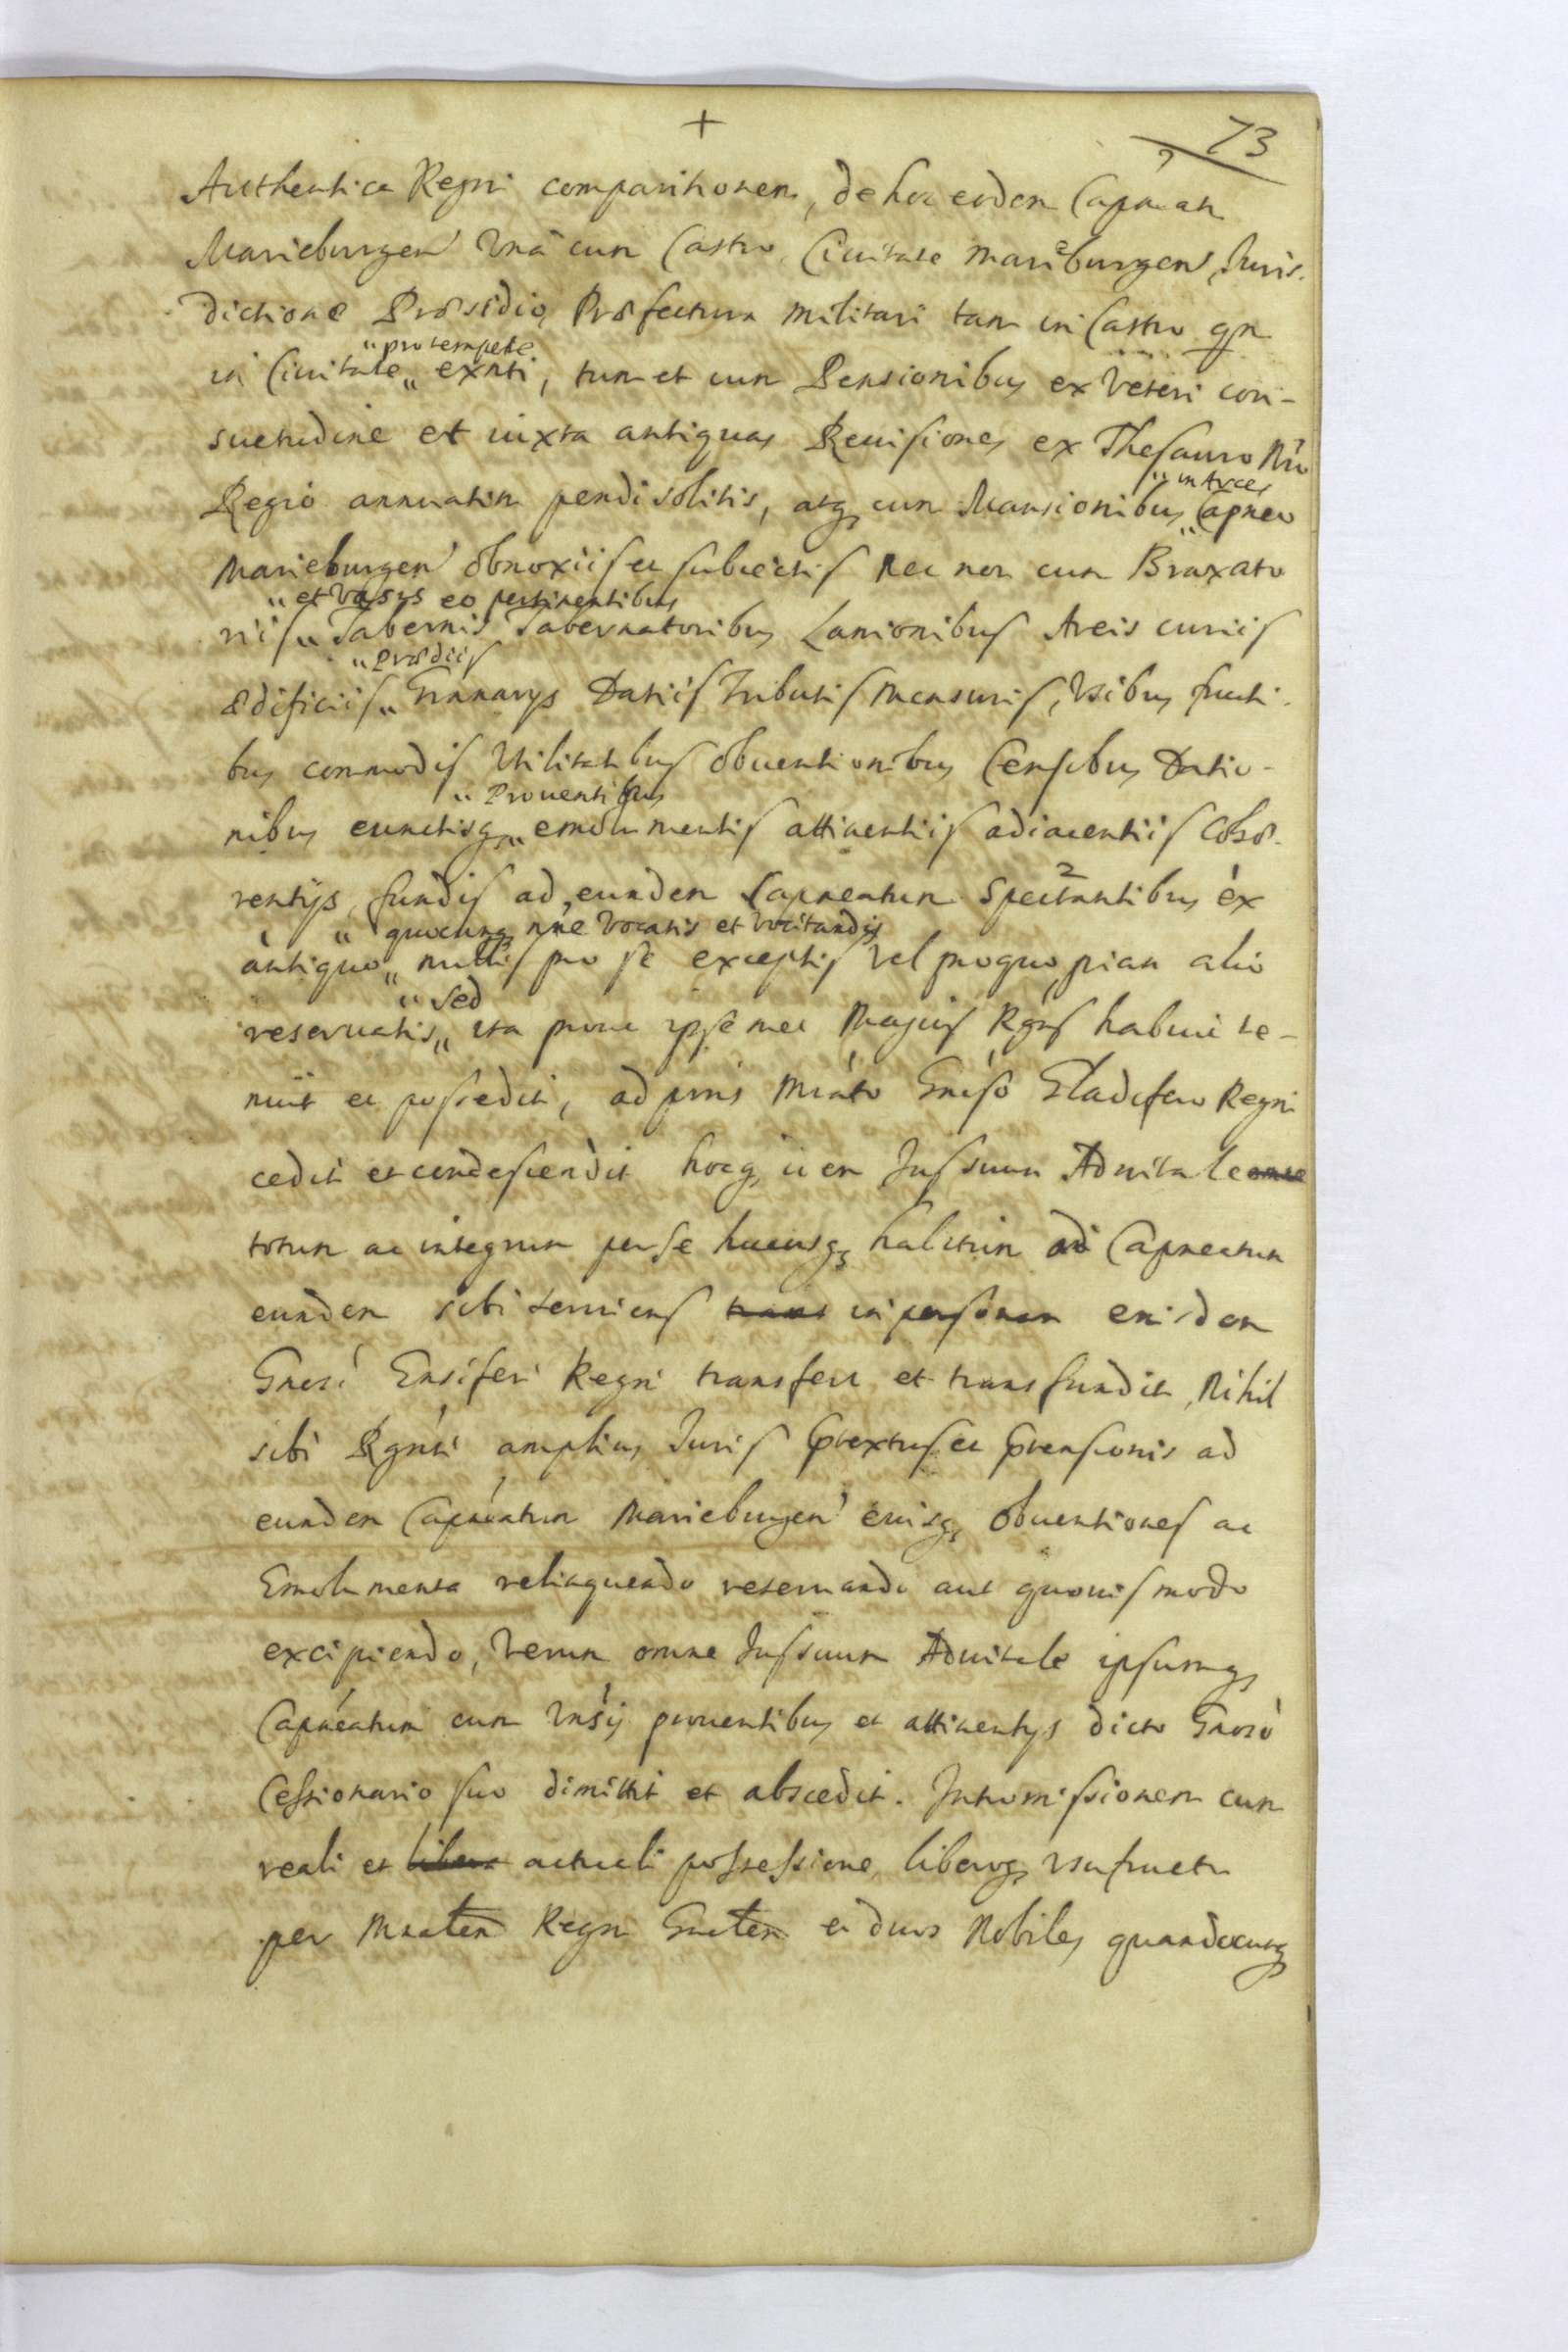 +
73
Authentica Regni comparitionem, de hoc eodem Capneatu
Marieburgen Vna cum Castro, Ciuitate Marieburgen, Juris-
dictione Præsidio, Præfectura militari tam in Castro qm
" pro tempore
in Ciuitate " exnti, tum et cum Pensionibus ex Veteri con-
suetudine et iuxta antiquas Reuisiones ex Thesauro Nro
" in Arce
Regio annuatim pendi solitis, atq cum Mansionibus " Capneo
Marieburgen obnoxiis et subiectis nec non cum Braxato
" et Vasys eo pertinentibus
riis " Tabernis Tabernatoribus Lanionibus Areis curiis
" Prædiis
ædificiis " Granarys Datiis Tributis mensuris, Vsibus fructi-
bus commodis Vtilitatibus obuentionibus Censibus Datio-
" Prouentibus
nibus cunctisq " emolumentis attinentiis adiacentiis Cohæ-
rentys, fundis ad eundem Capneatum Spectantibus ex
" quocunq nne Vocatis et Vocitandis
antiquo " nullis pro se exceptis Vel pro quopiam alio
" sed
reseruatis " ita prout ipsemet Magcus Rgns habuit te-
nuit et possedit, ad prns Mnato Gnoso Gladifero Regni
cedit et condescendit hocq item Jus suum Aduitale
totum ac integrum per se hucusq habitum ad Capneatum
eundem sibi seruiens in personam eiusdem
Gnosi Ensiferi Regni transfert et transfundit, Nihil
sibi Rgnti amplius Juris prætextus et prætensionis ad
eundem Capneatum Marieburgen eiusq obuentiones ac
Emolumenta relinquendo reseruando aut quouis modo
excipiendo, Verum omne Jus suum Aduitale ipsumq
Capneatum cum Vnsis prouentibus et attinentys dicto Gnoso
Cessionario suo dimittit et abscedit. Intromissionem cum
reali et actuali possessione, liberoq Vsufructu
per Mnlem Regni Gnlem et duos Nobiles quandocunq